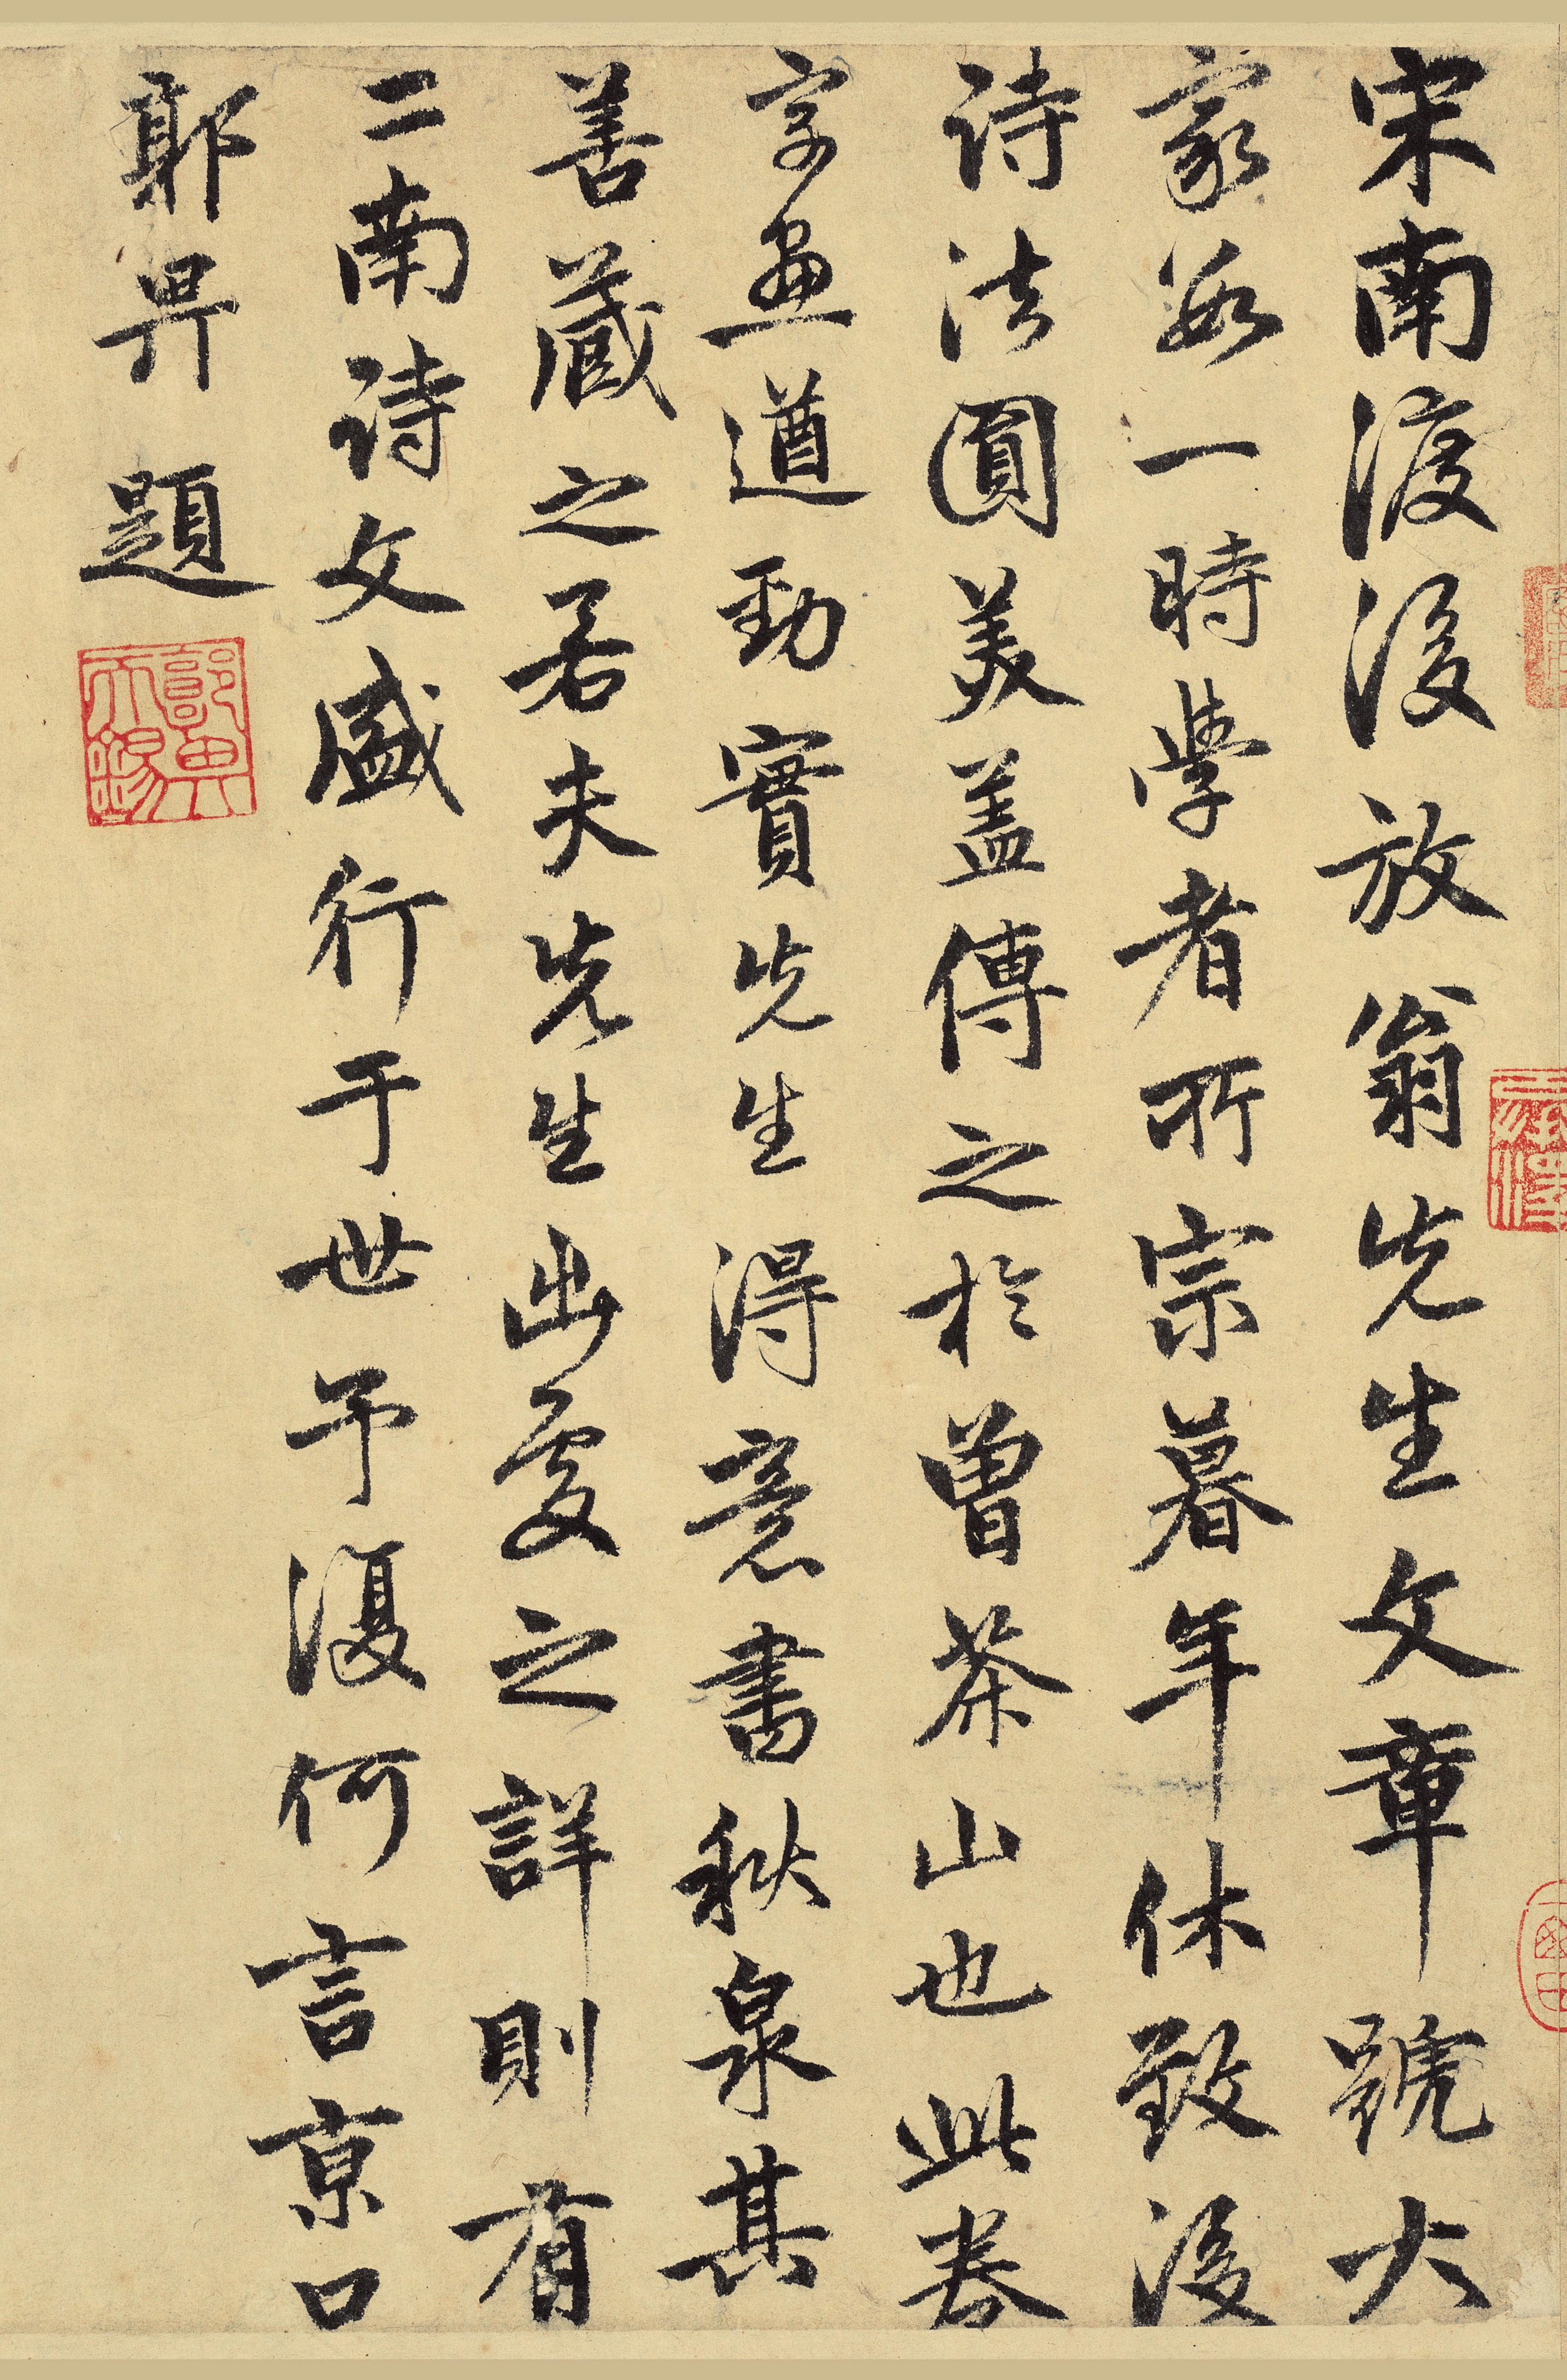 宋南渡後放翁先生文章號大
家數一時學者所宗暮年休致後
詩法圓美盖傳之於曾茶山也此卷
字畫遒勁實先生得意書秋泉其
善藏之若夫先生出處之詳則有
二南詩文盛行于世予復何言京口
郭畀題
郭畀
天錫